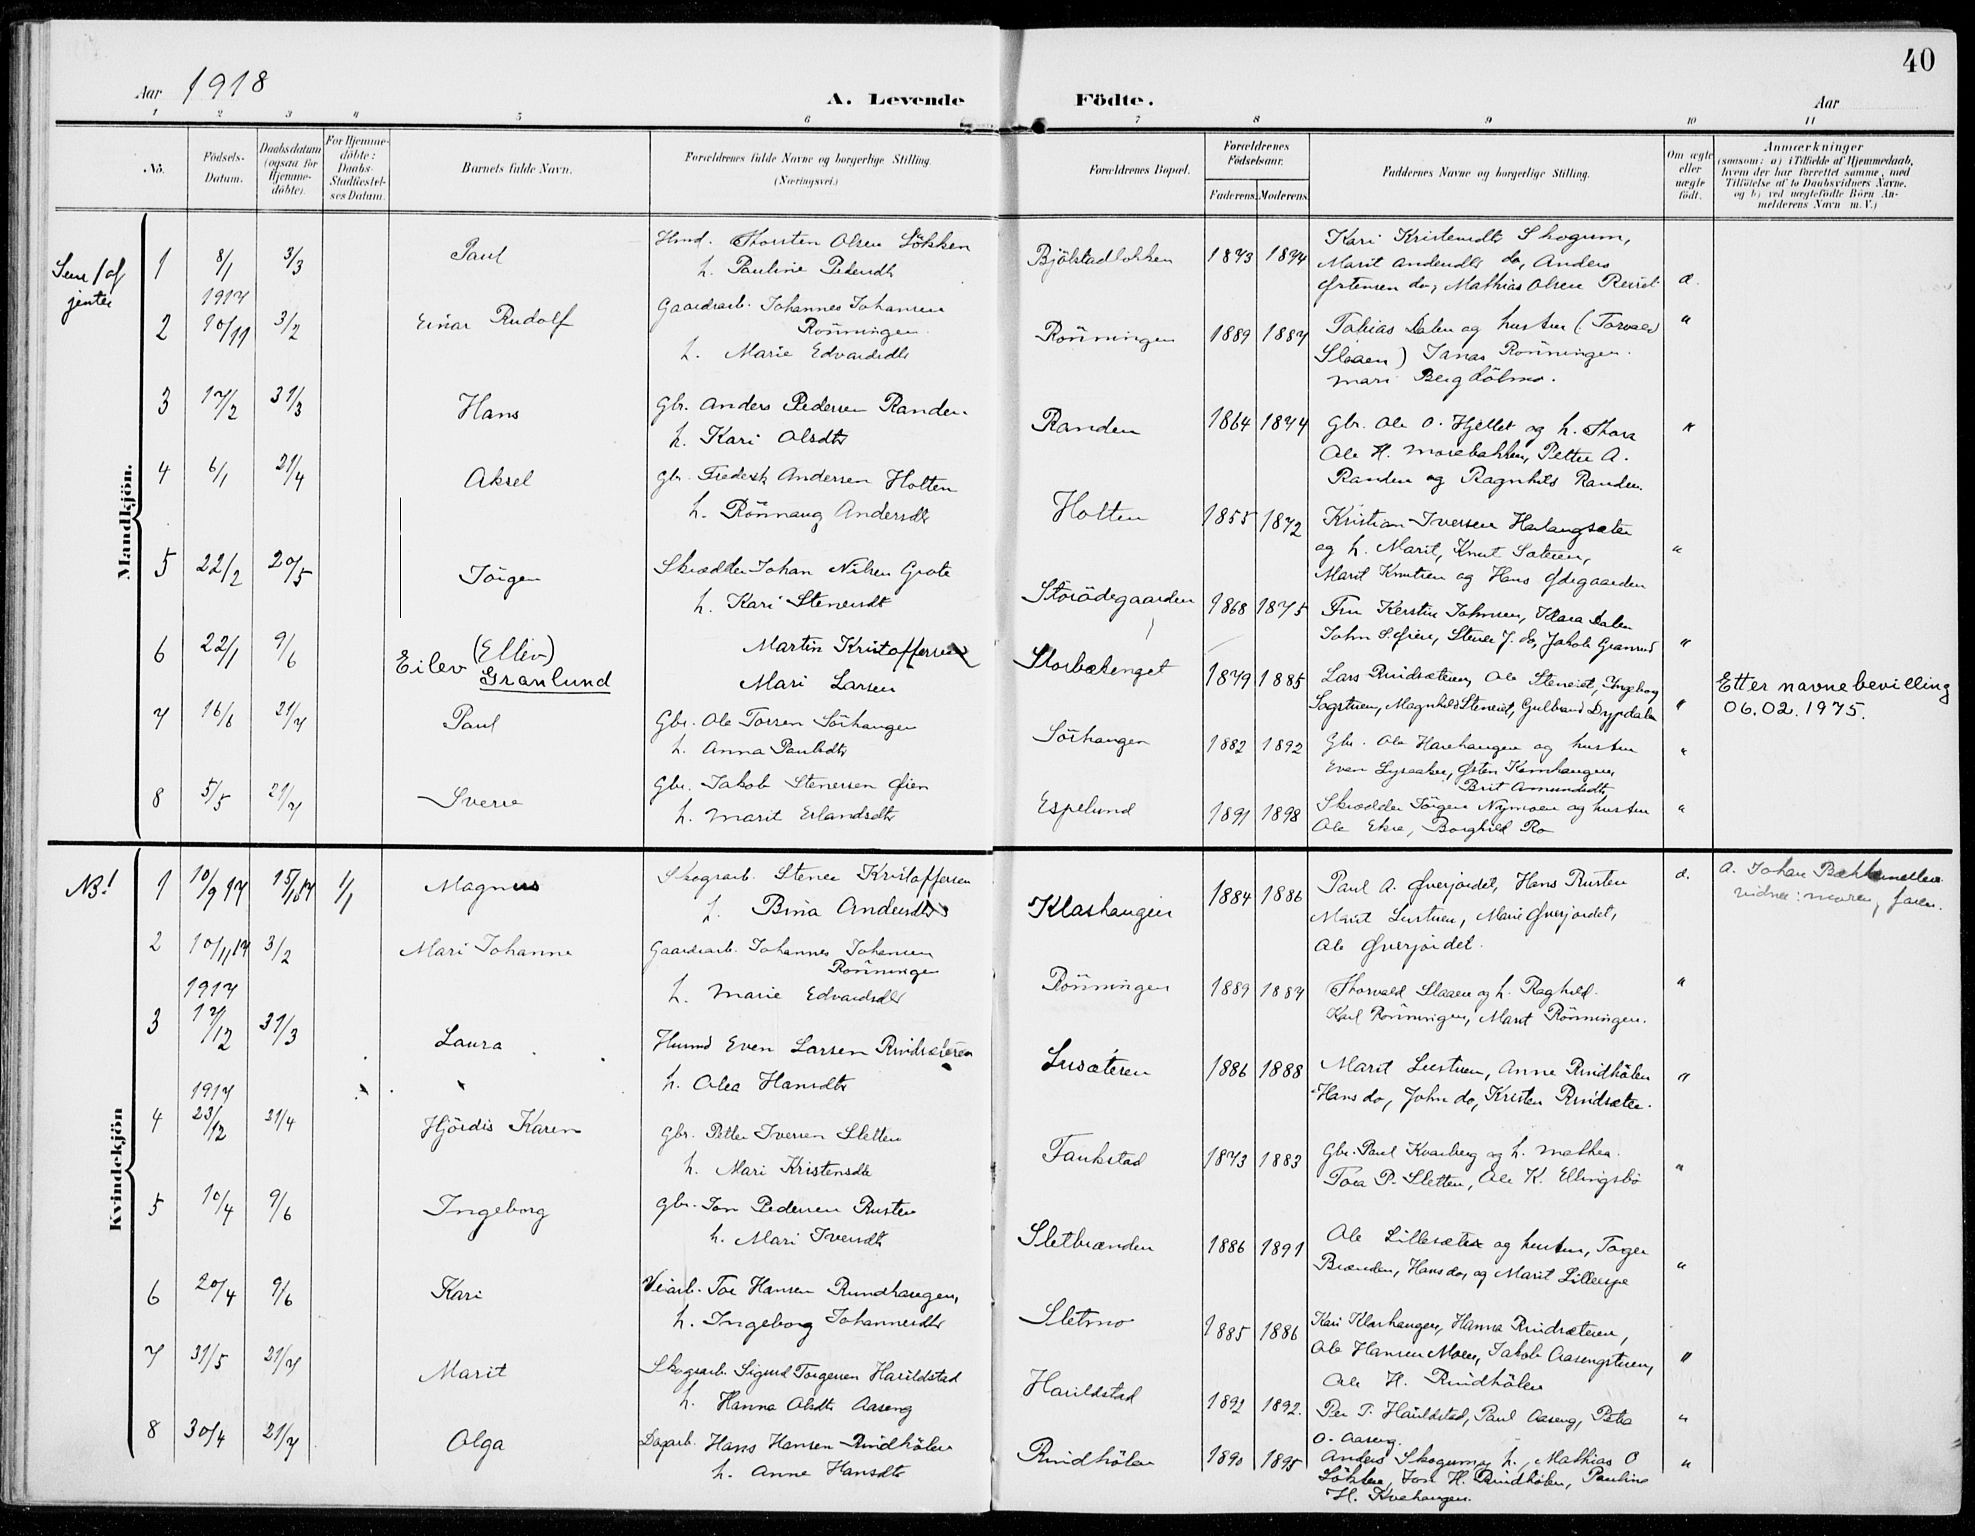 Aar 1918
A. Levende Födte.
Aar
40
1 2 3 4 5 6 7 8 9 10 11
No.
Födsels-Datum.
Daabsdatum (ogsaa for Hjemmedöbte).
For Hjemmedöbte: Daabs-Stadfæstelses Datum.
Barnets fulde Navn.
Forældrenes fulde Navne og borgerlige Stilling.
(Næringsvei.)
Forældrenes Bopæl.
Forældrenes Födselsaar.
Faderens. Moderens.
Faddernes Navne og borgerlige Stilling.
Om ægte eller uægte födt.
Anmærkninger
(saasom: a) i Tilfælde af Hjemmedaab, hvem der har forrettet samme, med Tilföielse af to Daabsvidners Navne, og b) ved uægtefödte Börn Anmelderens Navn m. V.)
Mandkjön.
jenter
1 8/1 3/3 Paul
Husmd. Thorsten Olsen Lökken
h. Pauline Pedersdtr
Bjölstadlökken 1873 1894
Kari Kristensdtr Skogum,
Marit Andersdtr do, Anders
Østensen do, Mathias Olsen Reiret
æ.
1917
2 10/11 3/2 Einar Rudolf
Gaardsarb. Johannes Johansen
Rönningen.
h. Marie Edvardsdtr
Rönningen 1889 1887 "
Tobias Dalen og hustru (Torvald
Slaaen) Jonas Rönningen.
Mari Berg Lölmo.
3 17/2 31/3 Hans
Gbr. Anders Pedersen Randen
h. Kari Olsdtr
Randen 1864 1874 "
Gbr. Ole O. Hjellet og h. Thora
Ole H. Morebakken, Petter A.
Randen og Ragnhild Randen.
4 6/1 21/4 Aksel
Gbr. Frederik Andersen Holten
h. Rönnaug Andersdtr
Holten 1855 1872 "
Kristian Iversen Haslangsæter
og h. Marit, Knut Sæteren,
Marit Knutsen og Hans Ødegaarden
5 22/2 20/5 Jörgen
Skrædder Johan Nilsen Grote
h. Kari Stenersdtr
Storödegaarden 1868 1875 "
Fru Kerstin Johnsen, Klara Dalen
John S. Øien, Stener J. do, Jakob Granrud
6 22/1 9/6 Eilev (Ellev)
Granlund
Martin Kristoffersen
Mari Larsen
Storbætenget 1879 1885 "
Lars Rindsæteren, Ole Steneiet, Ingeborg
Sagstuen, Magnhild Steneiet, Gulbrand Drypdalen
Etter navnebevilling
06.02.1975.
7 16/6 21/7 Paul
Gbr. Ole Torsen Sörhaugen
h. Anna Paulsdtr
Sörhaugen 1882 1892 "
Gbr. Ole Harehaugen og hustru
Even Lyseaker, Østen Kamhaugen,
Brit Amundsdtr
8 5/5 21/7 Sverre
Gbr. Jakob Stenersen Øien
h. Marit Erlandsdtr
Espelund 1891 1898 "
Skrædder Jörgen Nymoen og hustru
Ole Ekre, Borghild Ro
Kvindekjön
NB!
1 10/9 17 15/1 17 1/1 Magnus
Skogsarb. Stener Kristoffersen
h. Bina Andersdtr
Klashaugen 1884 1886 æ.
Paul A. Øverjordet, Hans Rusten
Marit Lustuen, Marie Øverjordet,
Ole Øverjordet.
A. Johan Bakkemellem
vidner: moren, faren.
2 10/11 17 3/2 Mari Johanne
Gaardsarb. Johannes Johansen
Rönningen
h. Marie Edvardsdtr
Rönningen 1889 1887 "
Thorvald Slaaen og h. Raghild.
Karl Rönningen, Marit Rönningen.
1917
3 17/12 31/3 Laura
Husmd Even Larsen Rindsæteren
h. Olea Hansdtr
Lusæteren 1886 1888 "
Marit Lustuen, Anne Rindhölen
Hans do, John do, Kristen Rindsæter.
1917
4 23/12 21/4 Hjördis Karen
Gbr. Petter Iversen Sletten
h. Mari Kristensdtr
Faukstad 1873 1883 "
Gbr. Paul Kvarberg og h. Mathea.
Tora P. Sletten, Ole K. Ellingsbö
5 10/4 9/6 Ingeborg
Gbr. Jon Pedersen Rusten
h. Mari Iversdtr
Sletbrænden 1886 1891 "
Ole Lillesæter og hustru, Torger
Brænden, Hans do, og Marit Lilleespe
6 20/4 9/6 Kari
Veiarb. Tor Hansen Rundhaugen,
h. Ingeborg Johannesdtr
Sletmo 1885 1886 "
Kari Klashaugen, Hanna Rindsæteren,
Ole Hansen Moen, Jakob Aasengstuen,
Ole H. Rindhölen
7 31/5 21/7 Marit
Skogsarb. Sigurd Torgersen Harildstad
h. Hanna Olsdtr Aaseng
Harildstad 1892 1892. "
Per T. Harildstad, Paul Aaseng, Petra
O. Aaseng.
8 30/4 21/7 Olga
Dagarb. Hans Hansen Rindhölen
h. Anne Hansdtr
Rindhölen 1890 1895 "
Anders Skogum og h., Mathias O
Lökken, Jon H. Rindhölen, Pauline
H. Kvehaugen.